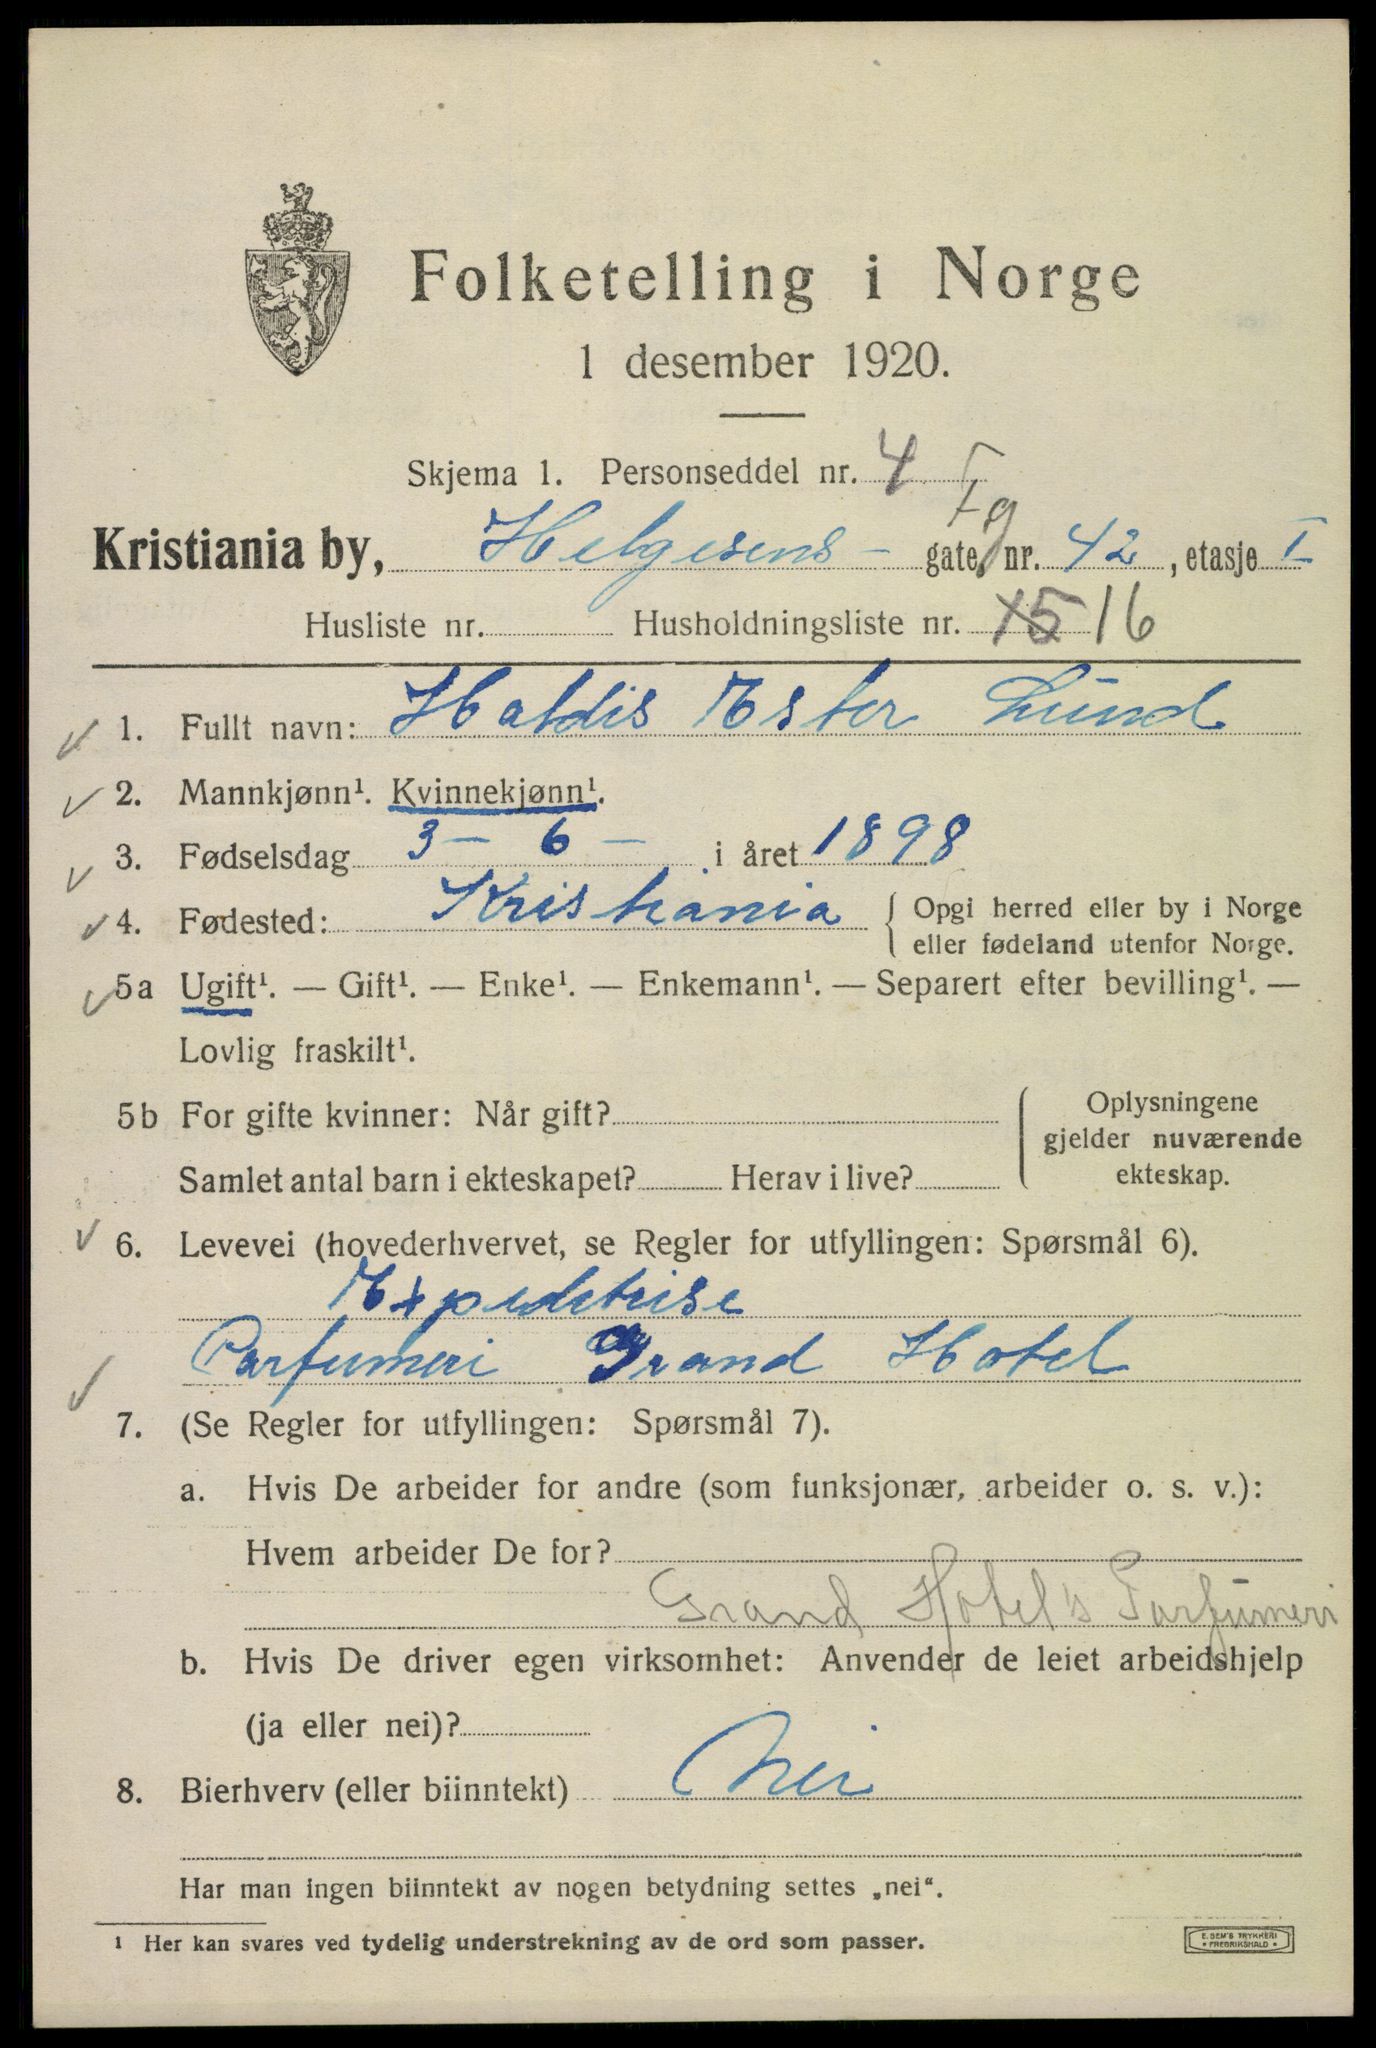 Folketelling i Norge
1 desember 1920.
Skjema 1. Personseddel nr. 4
Fg
Kristiania by, Helgesens - gate, nr. 42, etasje I
Husliste nr. Husholdningsliste nr. 15 16
1. Fullt navn: Haldis Ester Lund
2. Mannkjønn¹. Kvinnekjønn¹.
3. Fødselsdag 3 - 6 - i året 1898
4. Fødested: Kristiania { Opgi herred eller by i Norge
eller fødeland utenfor Norge.
5a Ugift¹. — Gift¹. — Enke¹. — Enkemann¹. — Separert efter bevilling¹. —
Lovlig fraskilt¹.
5b For gifte kvinner: Når gift? { Oplysningene
gjelder nuværende
Samlet antal barn i ekteskapet? Herav i live? ekteskap.
6. Levevei (hovederhvervet, se Regler for utfyllingen: Spørsmål 6).
Expedetrise
Parfumeri Grand Hotel
7. (Se Regler for utfyllingen: Spørsmål 7).
a. Hvis De arbeider for andre (som funksjonær, arbeider o. s. v.):
Hvem arbeider De for?
Grand Hotel's Parfumeri
b. Hvis De driver egen virksomhet: Anvender de leiet arbeidshjelp
(ja eller nei)?
8. Bierhverv (eller biinntekt) Nei
Har man ingen biinntekt av nogen betydning settes „nei“.
¹ Her kan svares ved tydelig understrekning av de ord som passer.
E. SEM'S TRYKKERI
• FREDRIKSHALD •